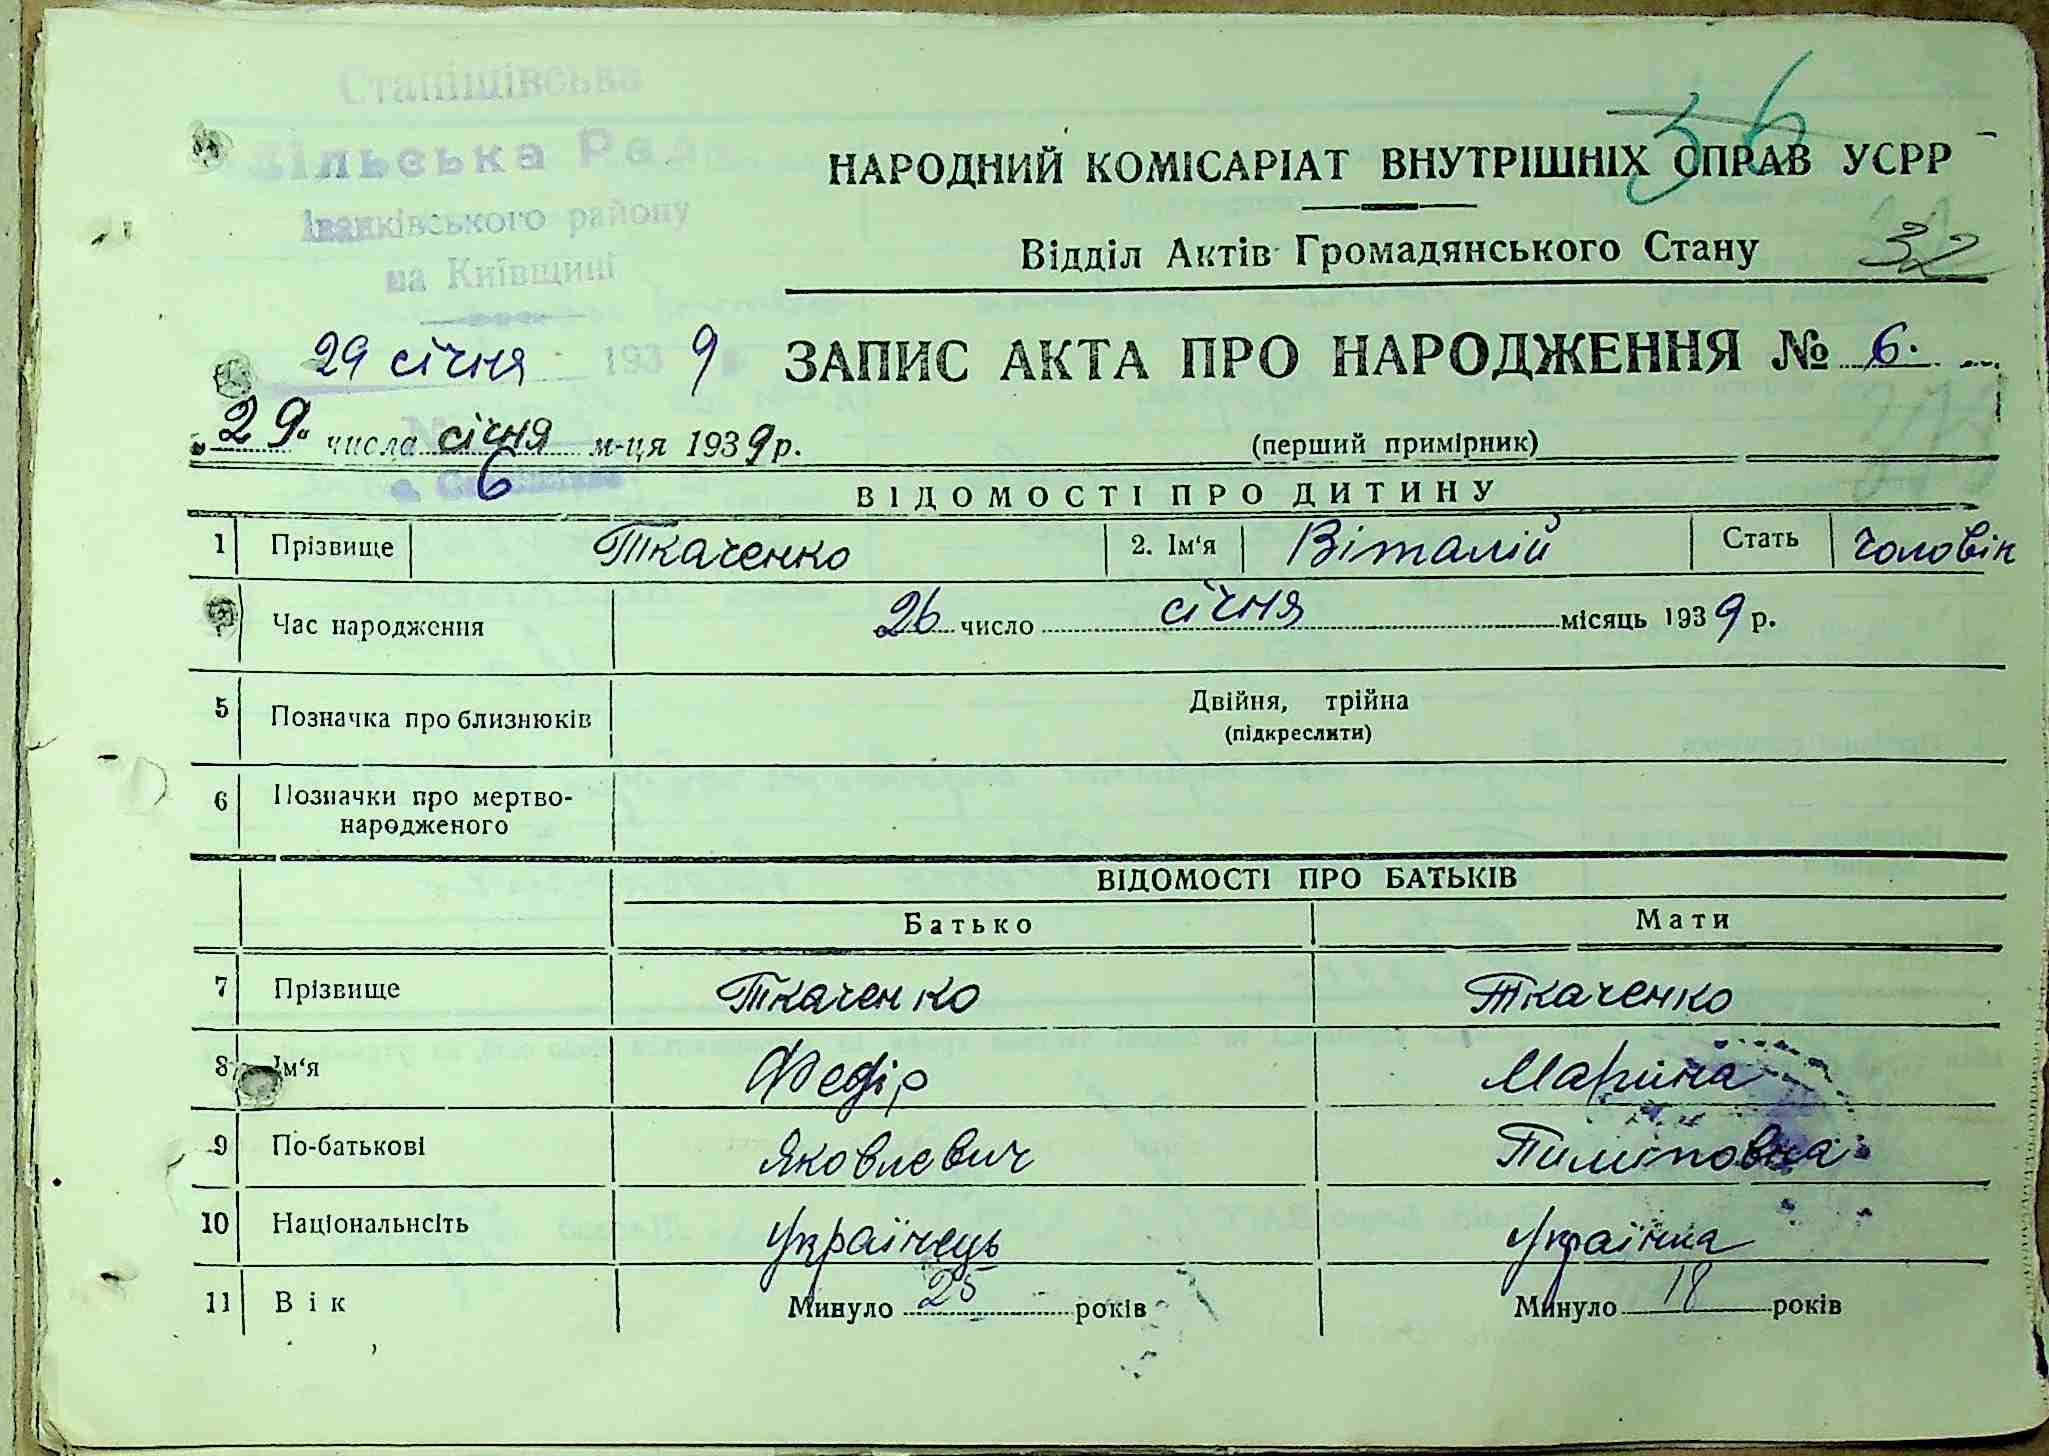 Станішівська
Сільська Рада
Іванківського району
на Київщині
36
НАРОДНИЙ КОМІСАРІАТ ВНУТРІШНІХ СПРАВ УСРР
Відділ Актів Громадянського Стану
32
29 січня 1939
ЗАПИС АКТА ПРО НАРОДЖЕННЯ № 6.
„29“ числа січня м-ця 1939 р.
(перший примірник)
№ 6
ВІДОМОСТІ ПРО ДИТИНУ
1 Прізвище Ткаченко 2. Ім‘я Віталій Стать чоловік
Час народження 26 число січня місяць 1939 р.
5 Позначка про близнюків Двійня, трійна
(підкреслити)
6 Позначки про мертво-
народженого
ВІДОМОСТІ ПРО БАТЬКІВ
Батько Мати
7 Прізвище Ткаченко Ткаченко
8 Ім‘я Федір Марина
9 По-батькові Яковлевич Пилиповна
10 Національнсіть Українець Українка
11 Вік Минуло 25 років Минуло 18 років